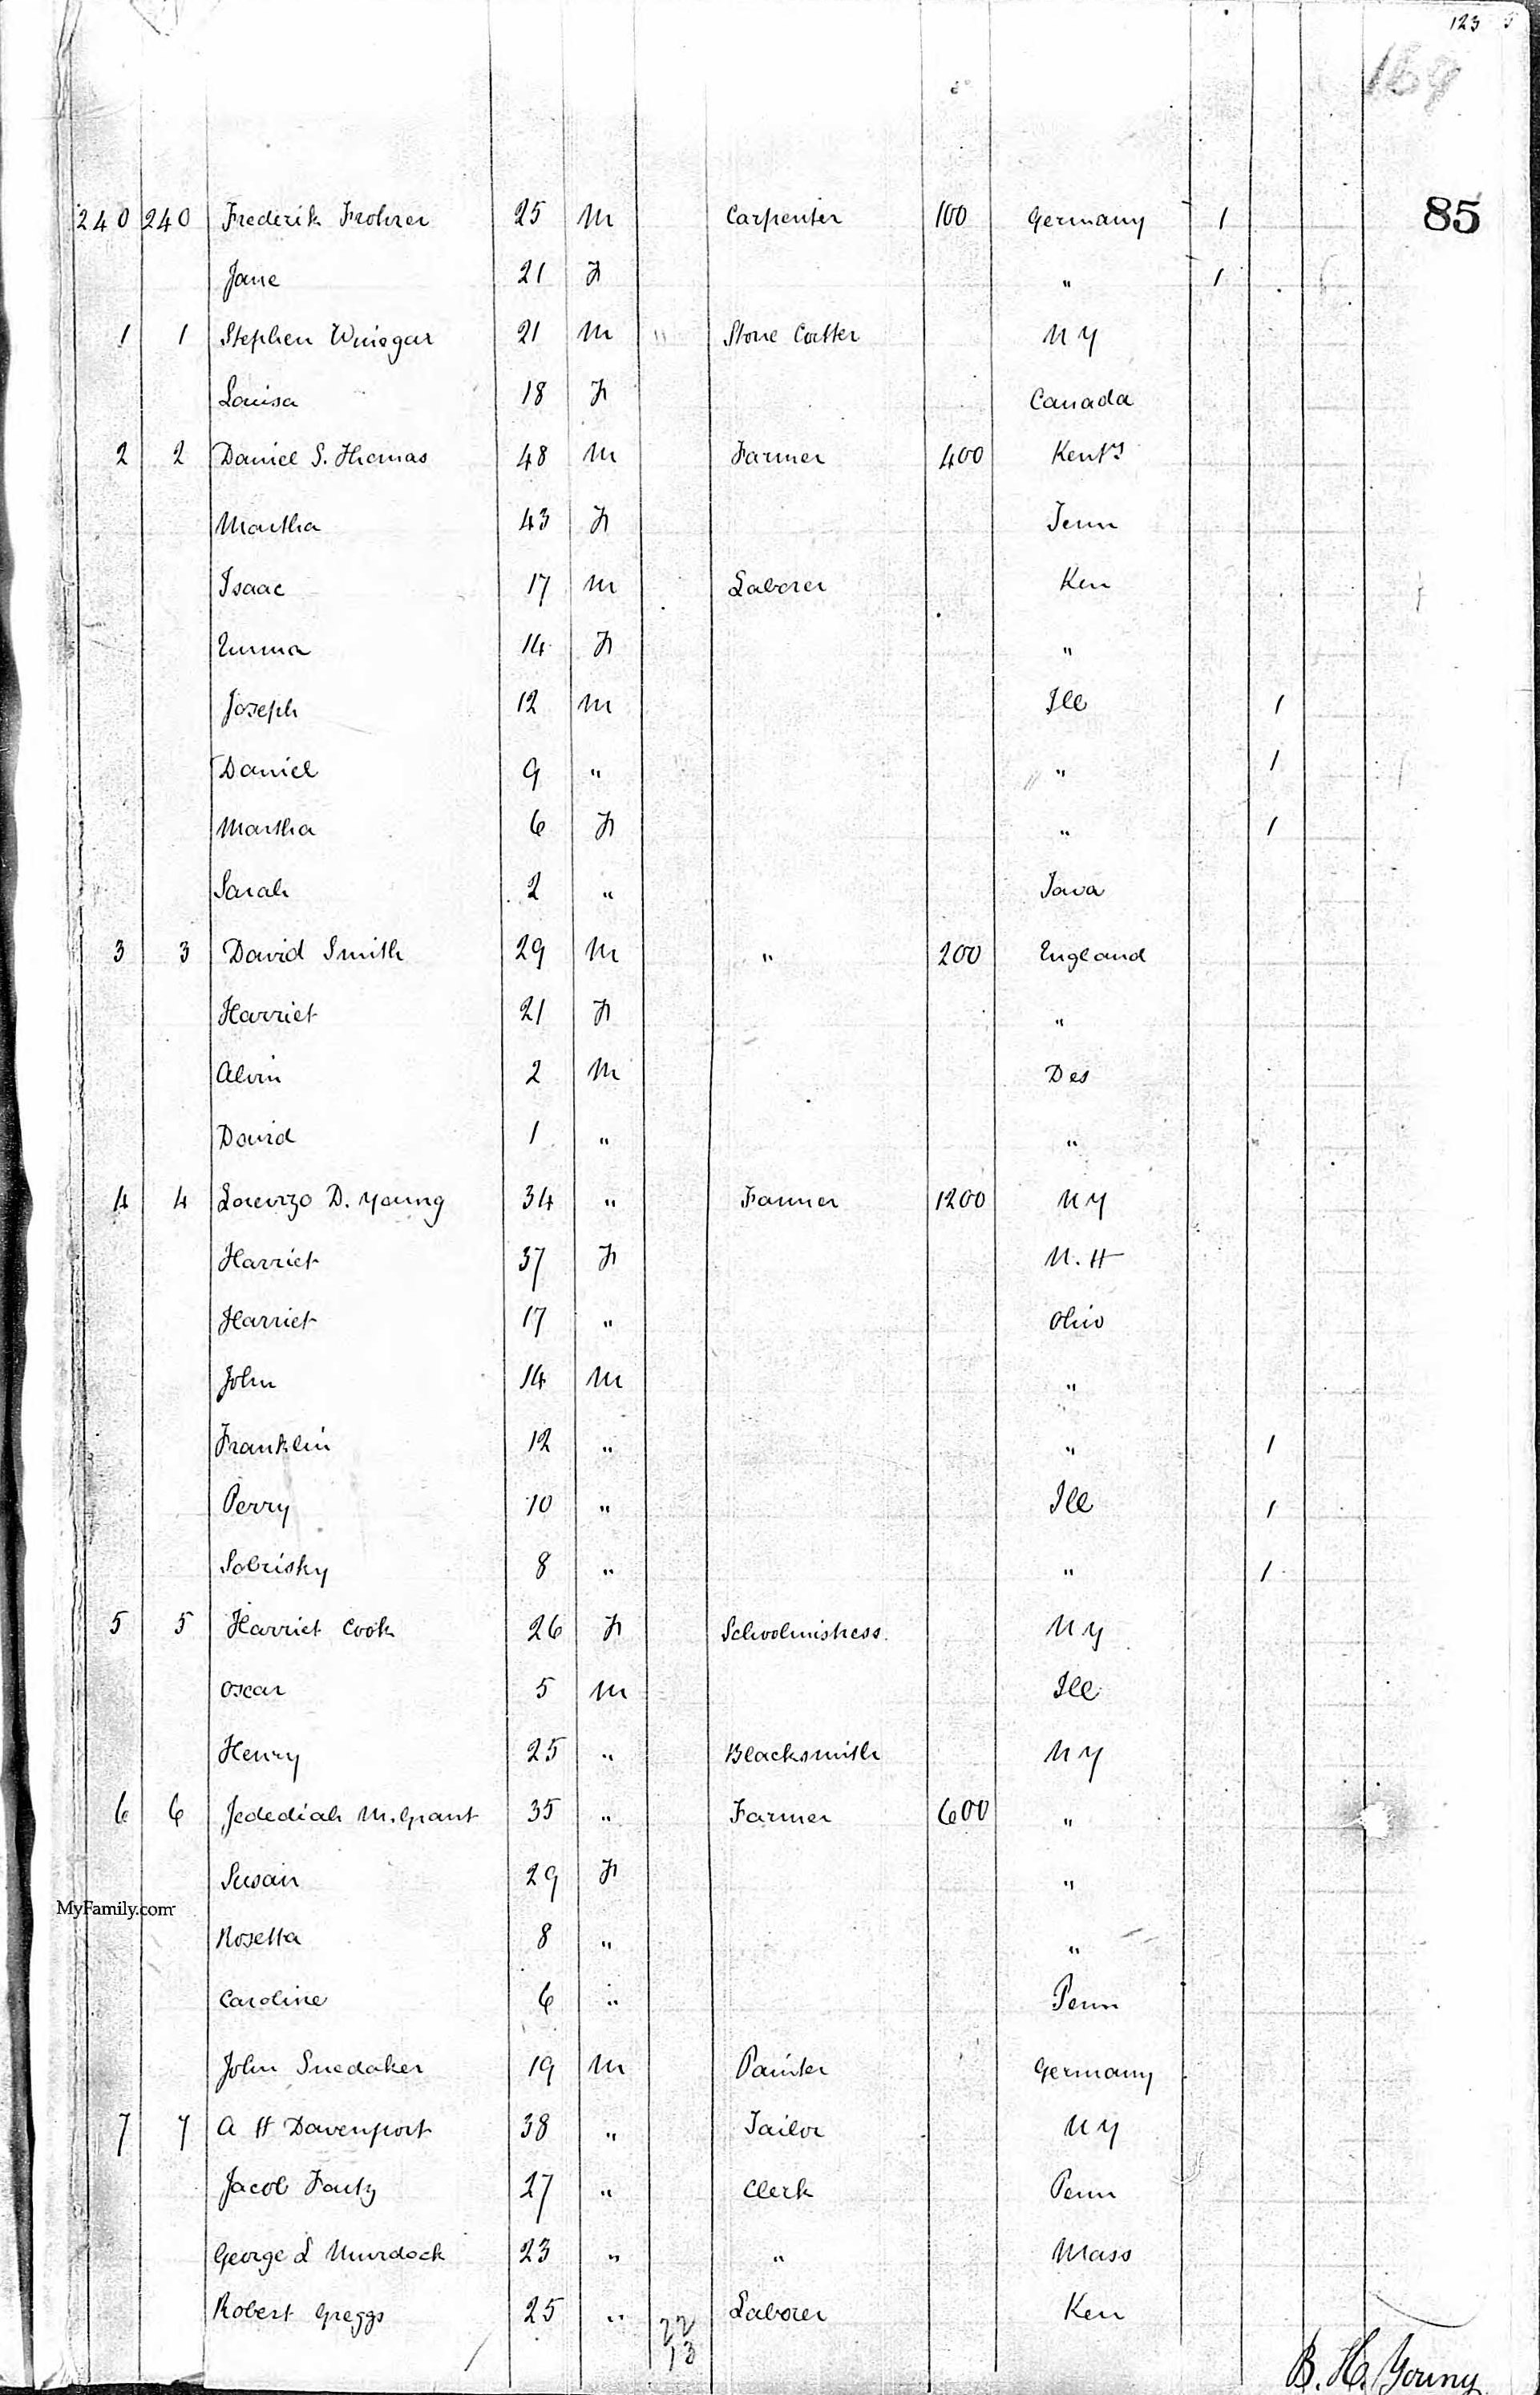 123
169
85
240 240 Frederik Frohrer 25 M Carpenter 100 Germany 1
Jane 21 F " 1
1 1 Stephen Winegar 21 M Stone Cutter N Y
Louisa 18 F Canada
2 2 Daniel S. Thomas 48 M Farmer 400 Kenty
Martha 43 F Tenn
Isaac 17 M Laborer Ken
Emma 14 F "
Joseph 12 M Ill 1
Daniel 9 " " 1
Martha 6 F " 1
Sarah 2 " Iowa
3 3 David Smith 29 M " 200 England
Harriet 21 F "
Alvin 2 M Des
David 1 " "
4 4 Lorenzo D. Young 34 " Farmer 1200 N Y
Harriet 37 F N. H
Harriet 17 " Ohio
John 14 M "
Franklin 12 " " 1
Perry 10 " Ill 1
Sobrisky 8 " " 1
5 5 Harriet Cook 26 F Schoolmistress N Y
Oscar 5 M Ill
Henry 25 " Blacksmith N Y
6 6 Jedediah M. Grant 35 " Farmer 600 "
Susan 29 F "
MyFamily.com
Rosetta 8 " "
Caroline 6 " Penn
John Snedaker 19 M Painter Germany
7 7 A H Davenport 38 " Tailor N Y
Jacob Fouty 27 " Clerk Penn
George L Murdock 23 " " Mass
Robert Greggs 25 " Laborer Ken
22
13
B. H. Young